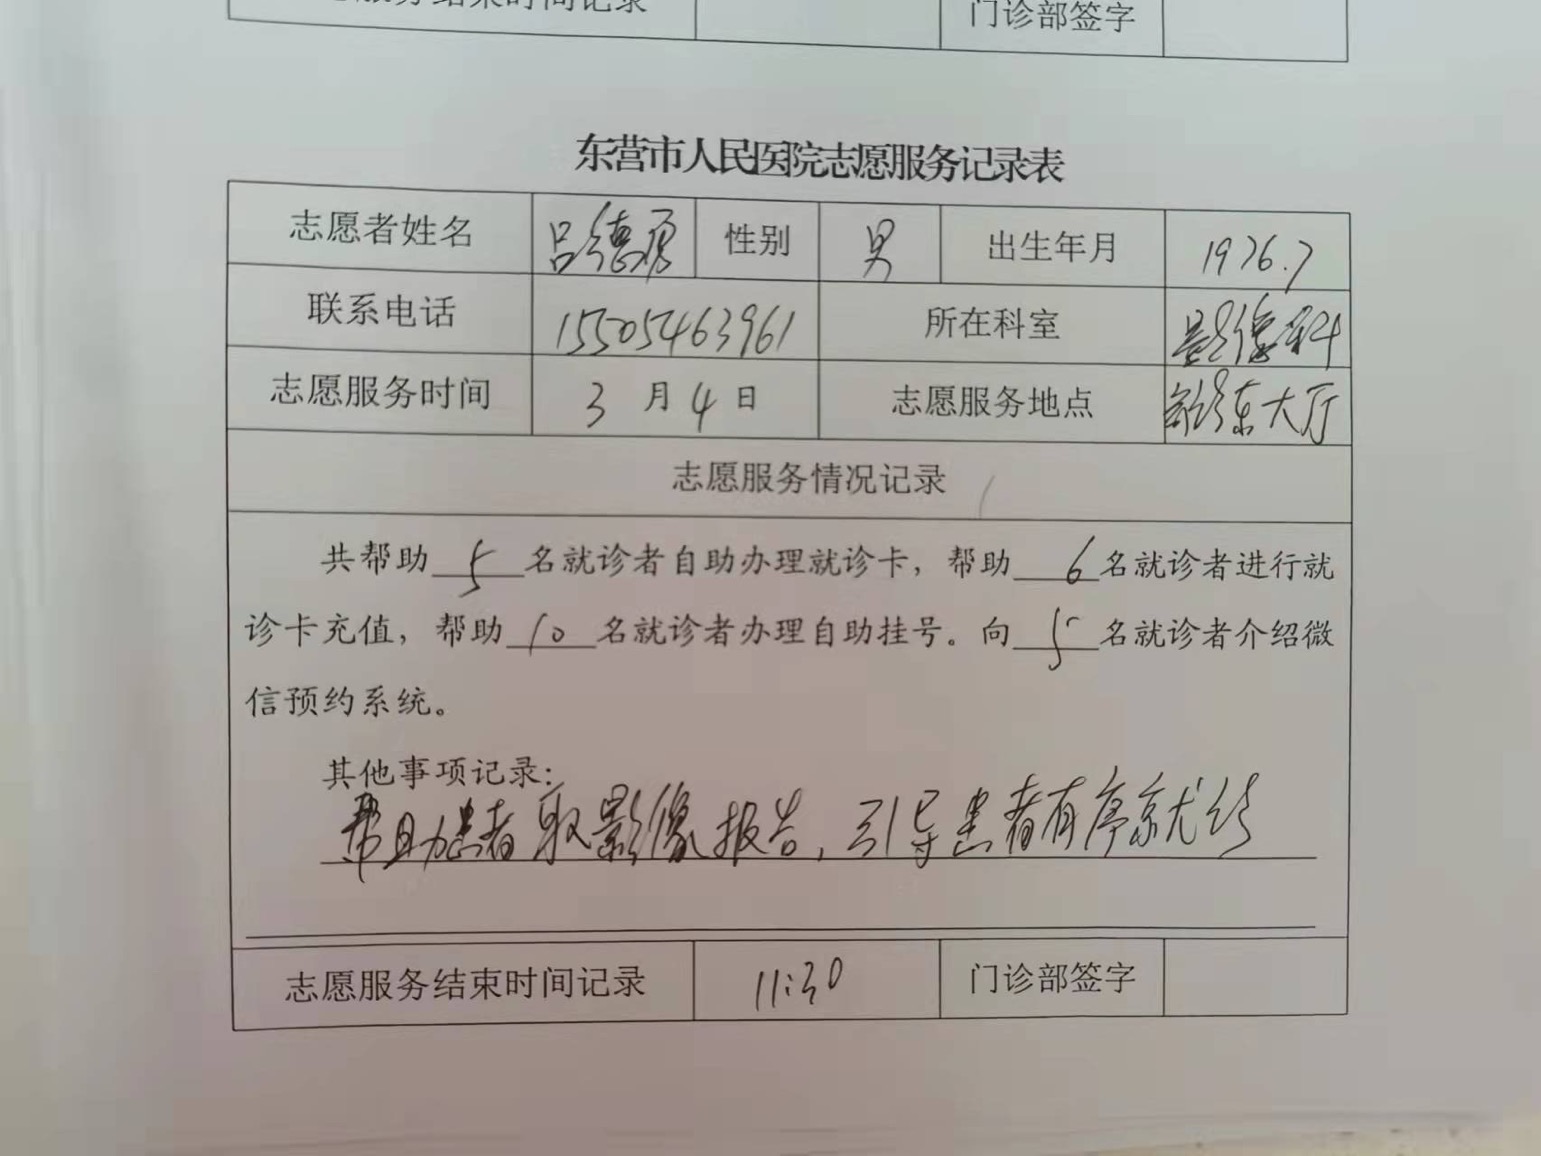 志愿服务结束时间记录 门诊部签字
东营市人民医院志愿服务记录表
志愿者姓名 吕德勇 性别 男 出生年月 1976.7
联系电话 15505463961 所在科室 影像科
志愿服务时间 3月4日 志愿服务地点 东大厅
志愿服务情况记录
共帮助5名就诊者自助办理就诊卡，帮助6名就诊者进行就
诊卡充值，帮助10名就诊者办理自助挂号。向5名就诊者介绍微
信预约系统。
其他事项记录：
帮助患者取影像报告，引导患者有序就诊
志愿服务结束时间记录 11:30 门诊部签字